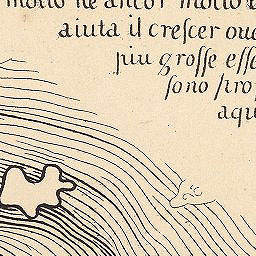 molto ne ancor molto
aiuta il creſcer oue
piu groſſe eſſe
ſono pro
aqu